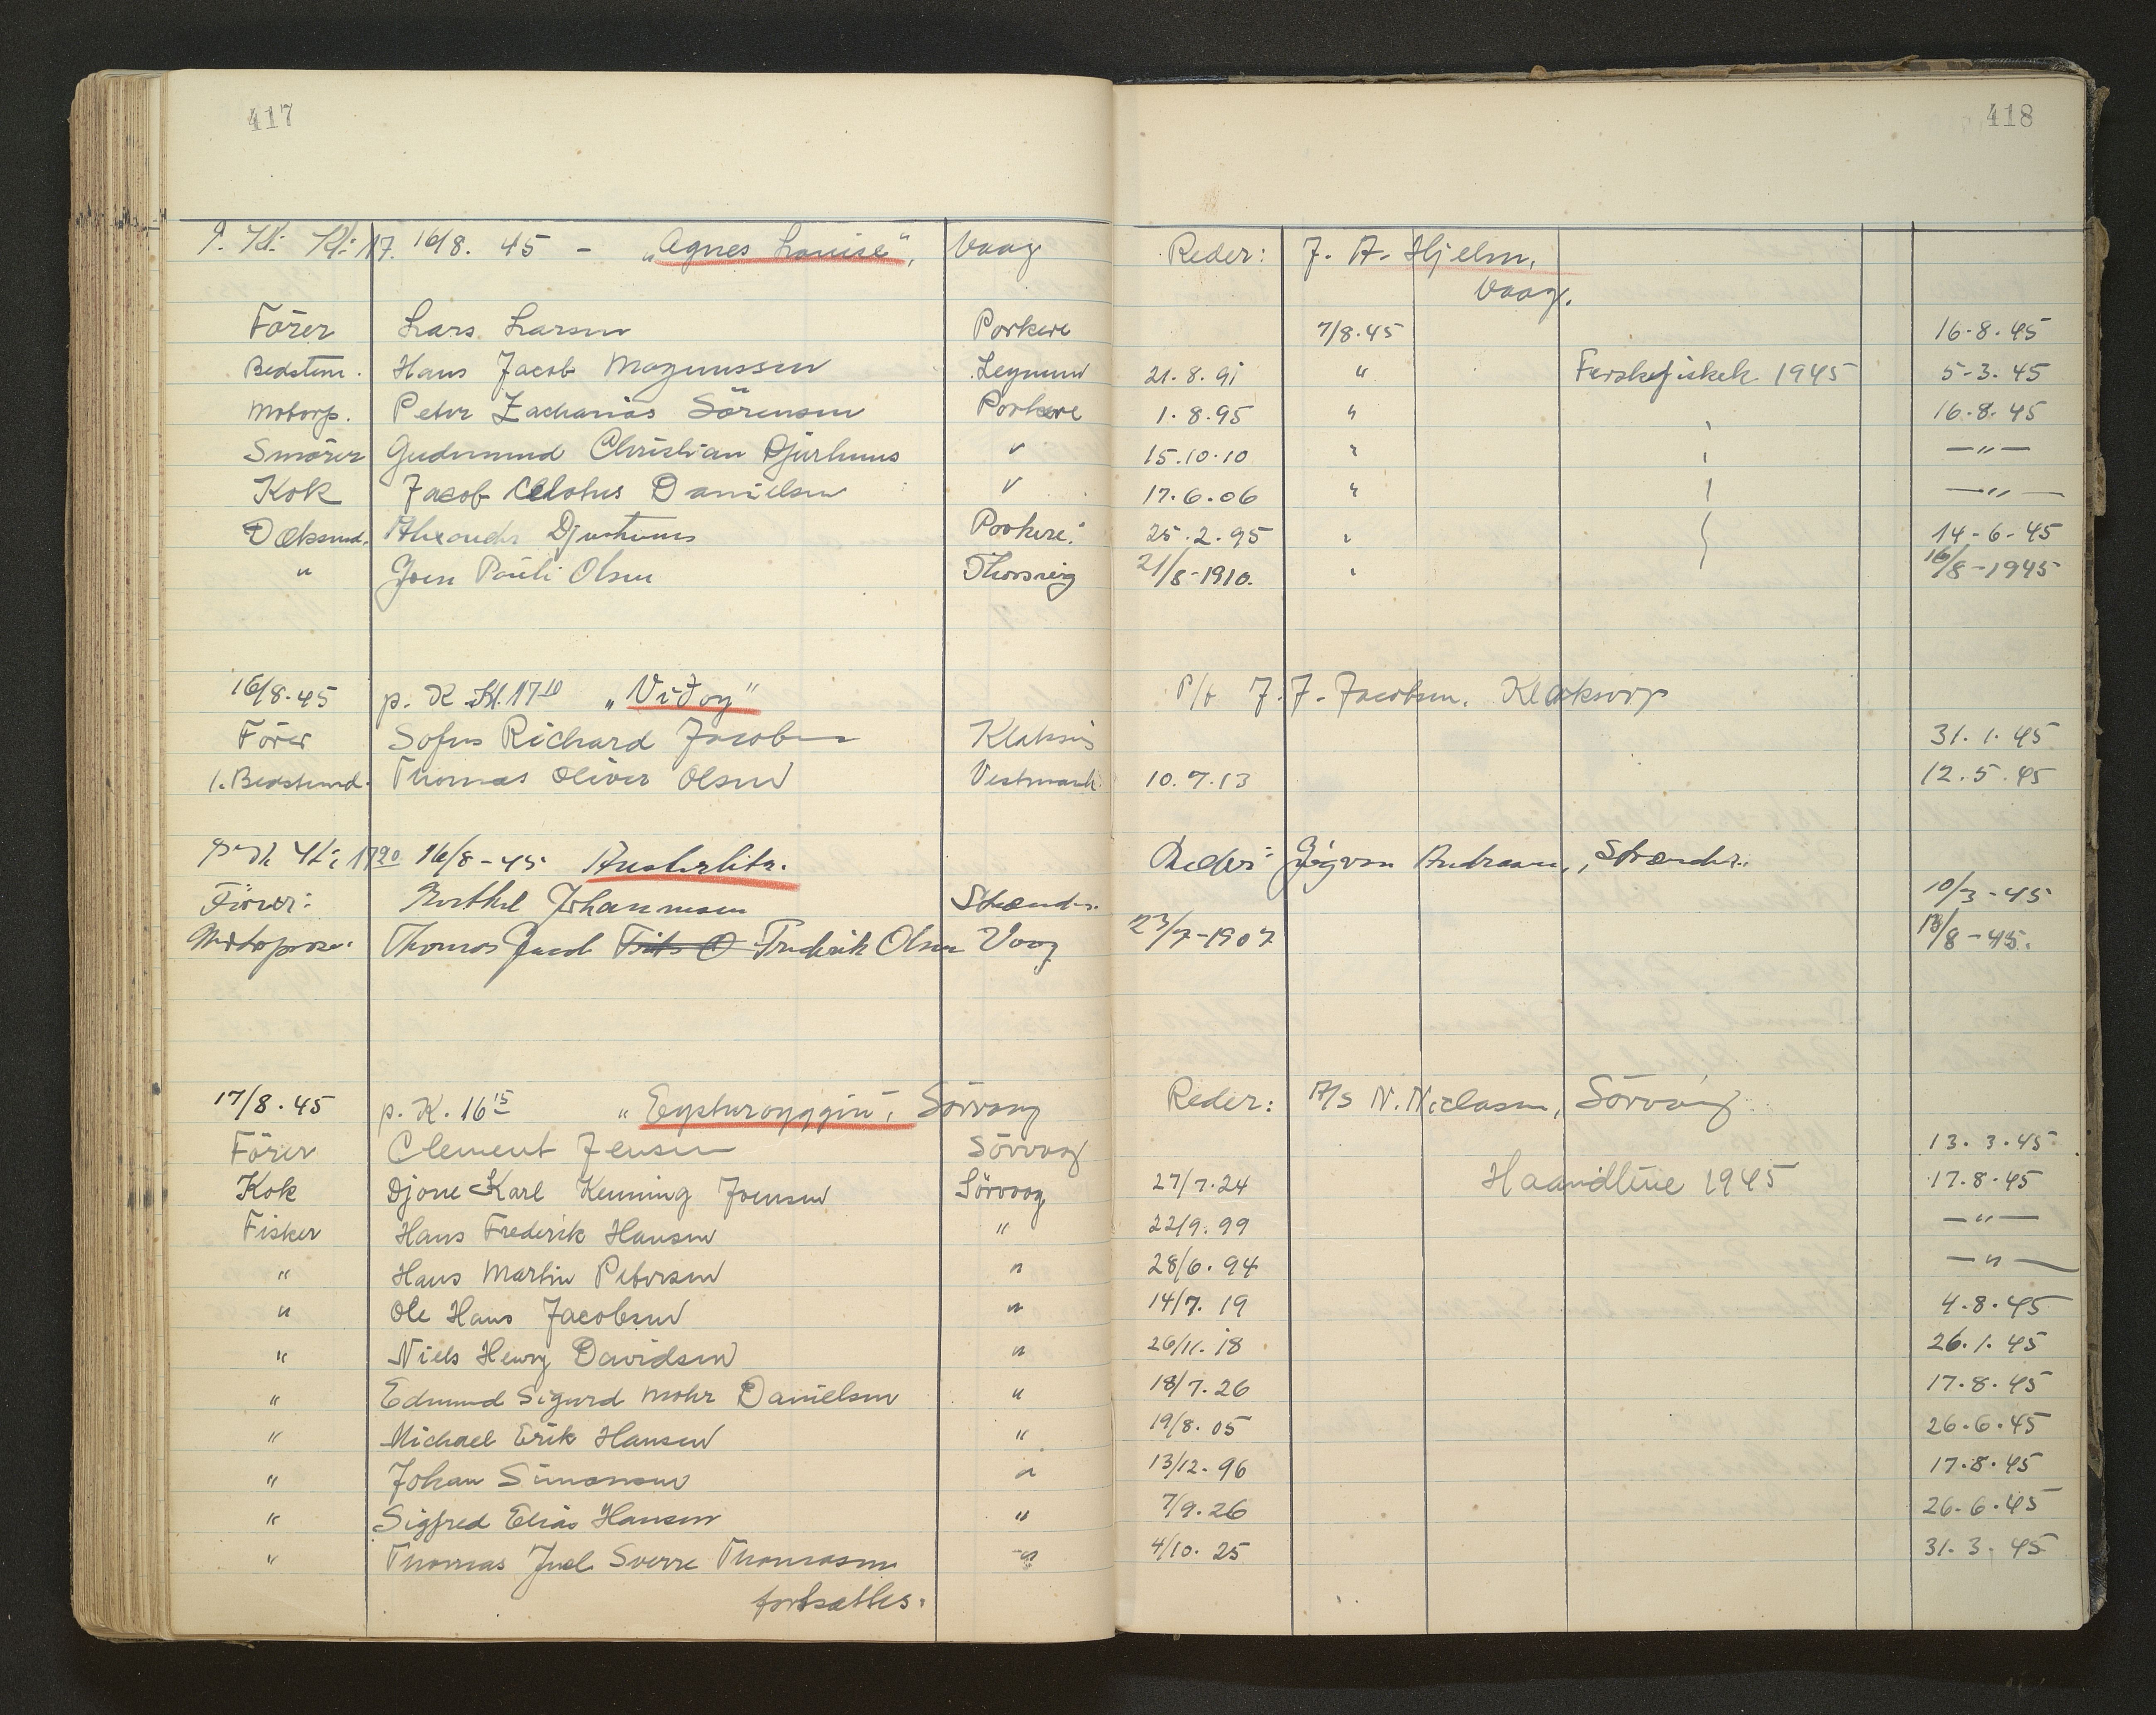 417
418
16/8. 45 - „Agnes Louise", Vaag Reder: J. A. Hjelm,
Vaag.
Förer Lars Larsen Porkere 7/8.45 16-8.45
Bedstem. Hans Jacob Magnussen 21.8.91 " Ferskfisket 1945 5-3.45
Motorp. Peter Zacharias Sörensen Porkere 1.8.95 " 16.8.45
Smörer Gudmund Christian Djurhuus " 15.10.10 " —"—
Kok Jacob Danielsen " 17.6.06 " —"—
Dæksmd. Djurhuus Porkere 25.2.95 " 14-6-45
" Joen Pauli Olsen 21/8-1910. " 16/8-1945
16/8.45 p. K. Kl. 17 10 „Viðoy" P/r J. J. Jacobsen. Klaksvig
Förer Sofus Richard Jacobsen Klaksvig 31.1.45
1. Bedstemd. Thomas Oliver Olsen Vestmanh. 10.7.13 12.5.45
17 20 16/8-45 Austerlitz. Reder: Strænder.
Förer: Johannesen Strænder. 10/3-45
Motorpasser. Thomas Jacob Frederik Olsen Vaag 23/7-1907 13/8-45.
17/8.45 p. K. 16 15 „Eysturoyggin", Sörvaag Reder: A/S N. Niclasen, Sörvaag
Förer Clement Jensen Sörvaag 13.3.45
Kok Djone Karl Kenning Joensen Sörvaag 27/7.24 Haandline 1945 17.8.45
Fisker Hans Frederik Hansen " 22/9.99 —"—
" Hans Martin Petersen " 28/6.94 —"—
" Ole Hans Jacobsen " 14/7.19 4.8.45
" Niels Henry Davidsen " 26/11.18 26.1.45
" Edmund Sigurd Mohr Danielsen " 18/7.26 17.8.45
" Michael Erik Hansen " 19/8.05 26.6.45
" Johan Simonsen " 13/12.96 17.8.45
" Sigfred Elias Hansen " 7/9.26 26.6.45
" Thomas Juel Sverre Thomasen " 4/10.25 31.3.45
fortsættes.